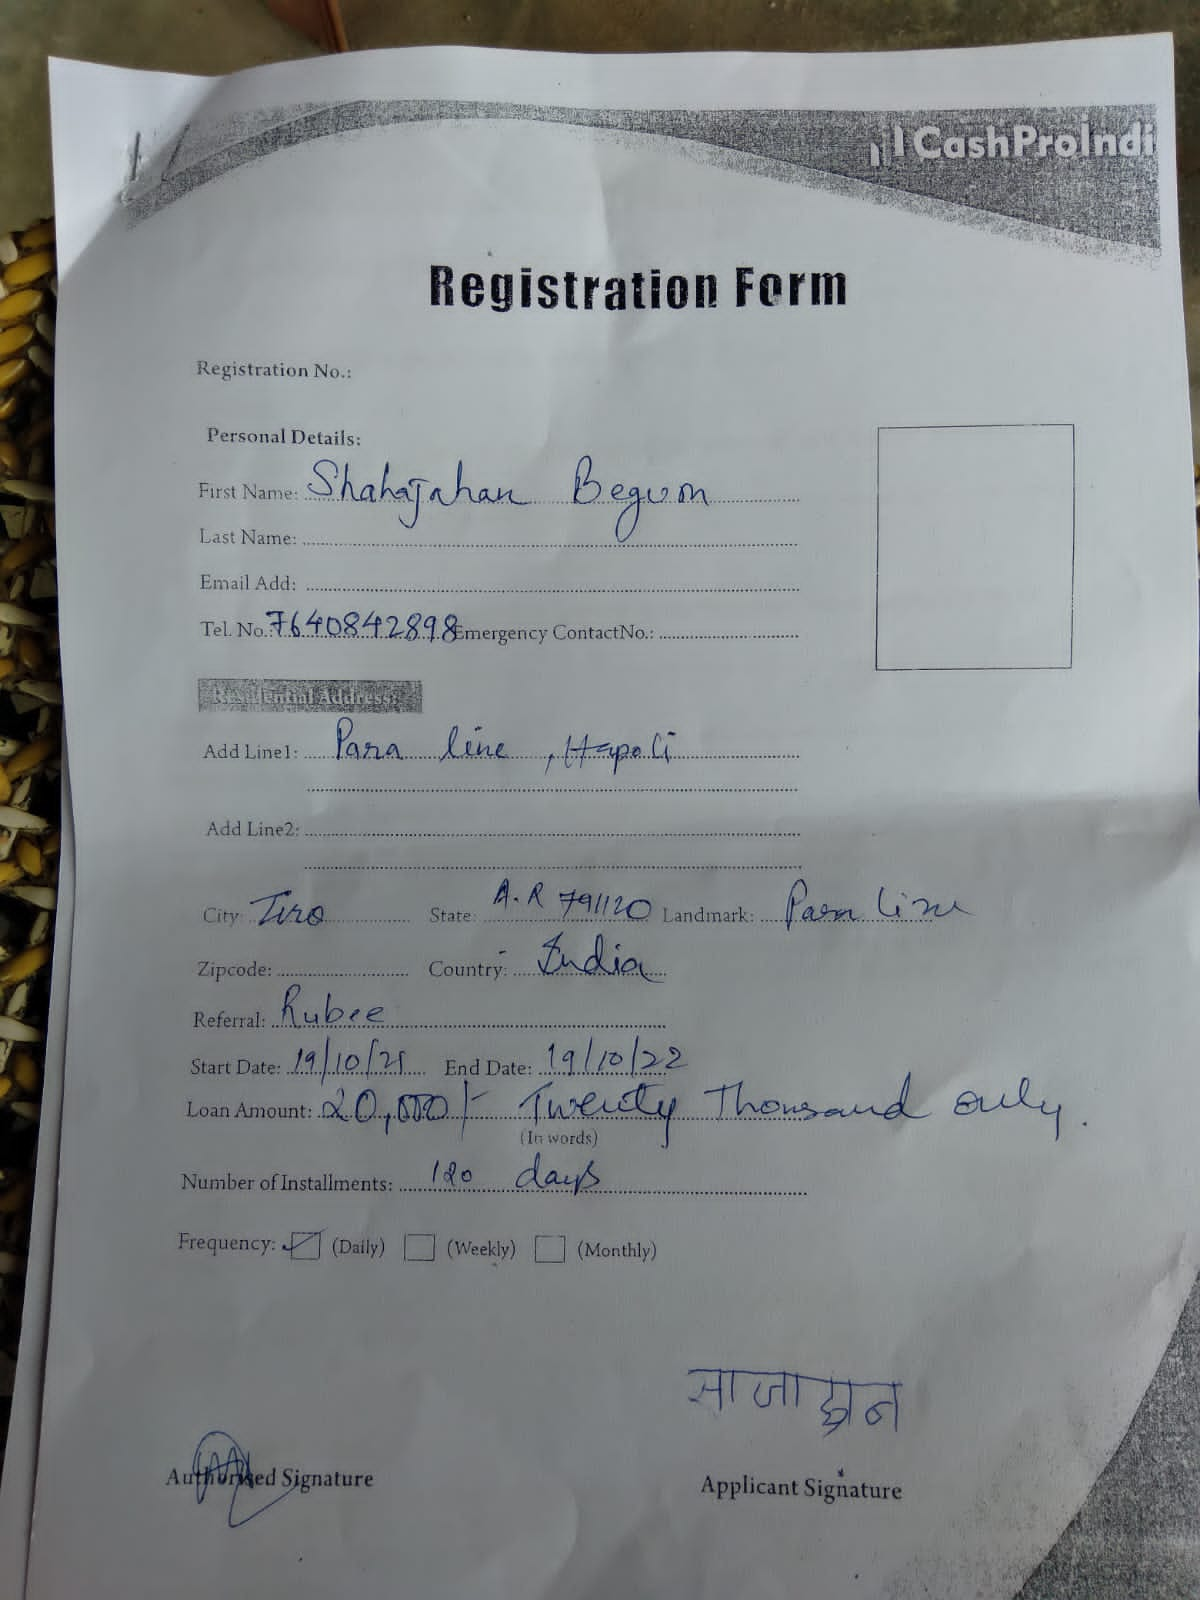 CashProIndi
Registration Form
Registration No.:
Personal Details:
First Name: Shahajahan Begum
Last Name:
Email Add:
Tel. No.: 7640842898 Emergency ContactNo.:
Residential Address:
Add Line1: Para line, Hapoli
Add Line2:
City: Ziro State: A.R 791120 Landmark: Para line
Zipcode: Country: India
Referral: Rubee
Start Date: 19/10/21 End Date: 19/10/22
Loan Amount: 20,000/- Twenty Thousand only.
(In words)
Number of Installments: 120 days
Frequency: (Daily) (Weekly) (Monthly)
साजाहान
Authorised Signature
Applicant Signature